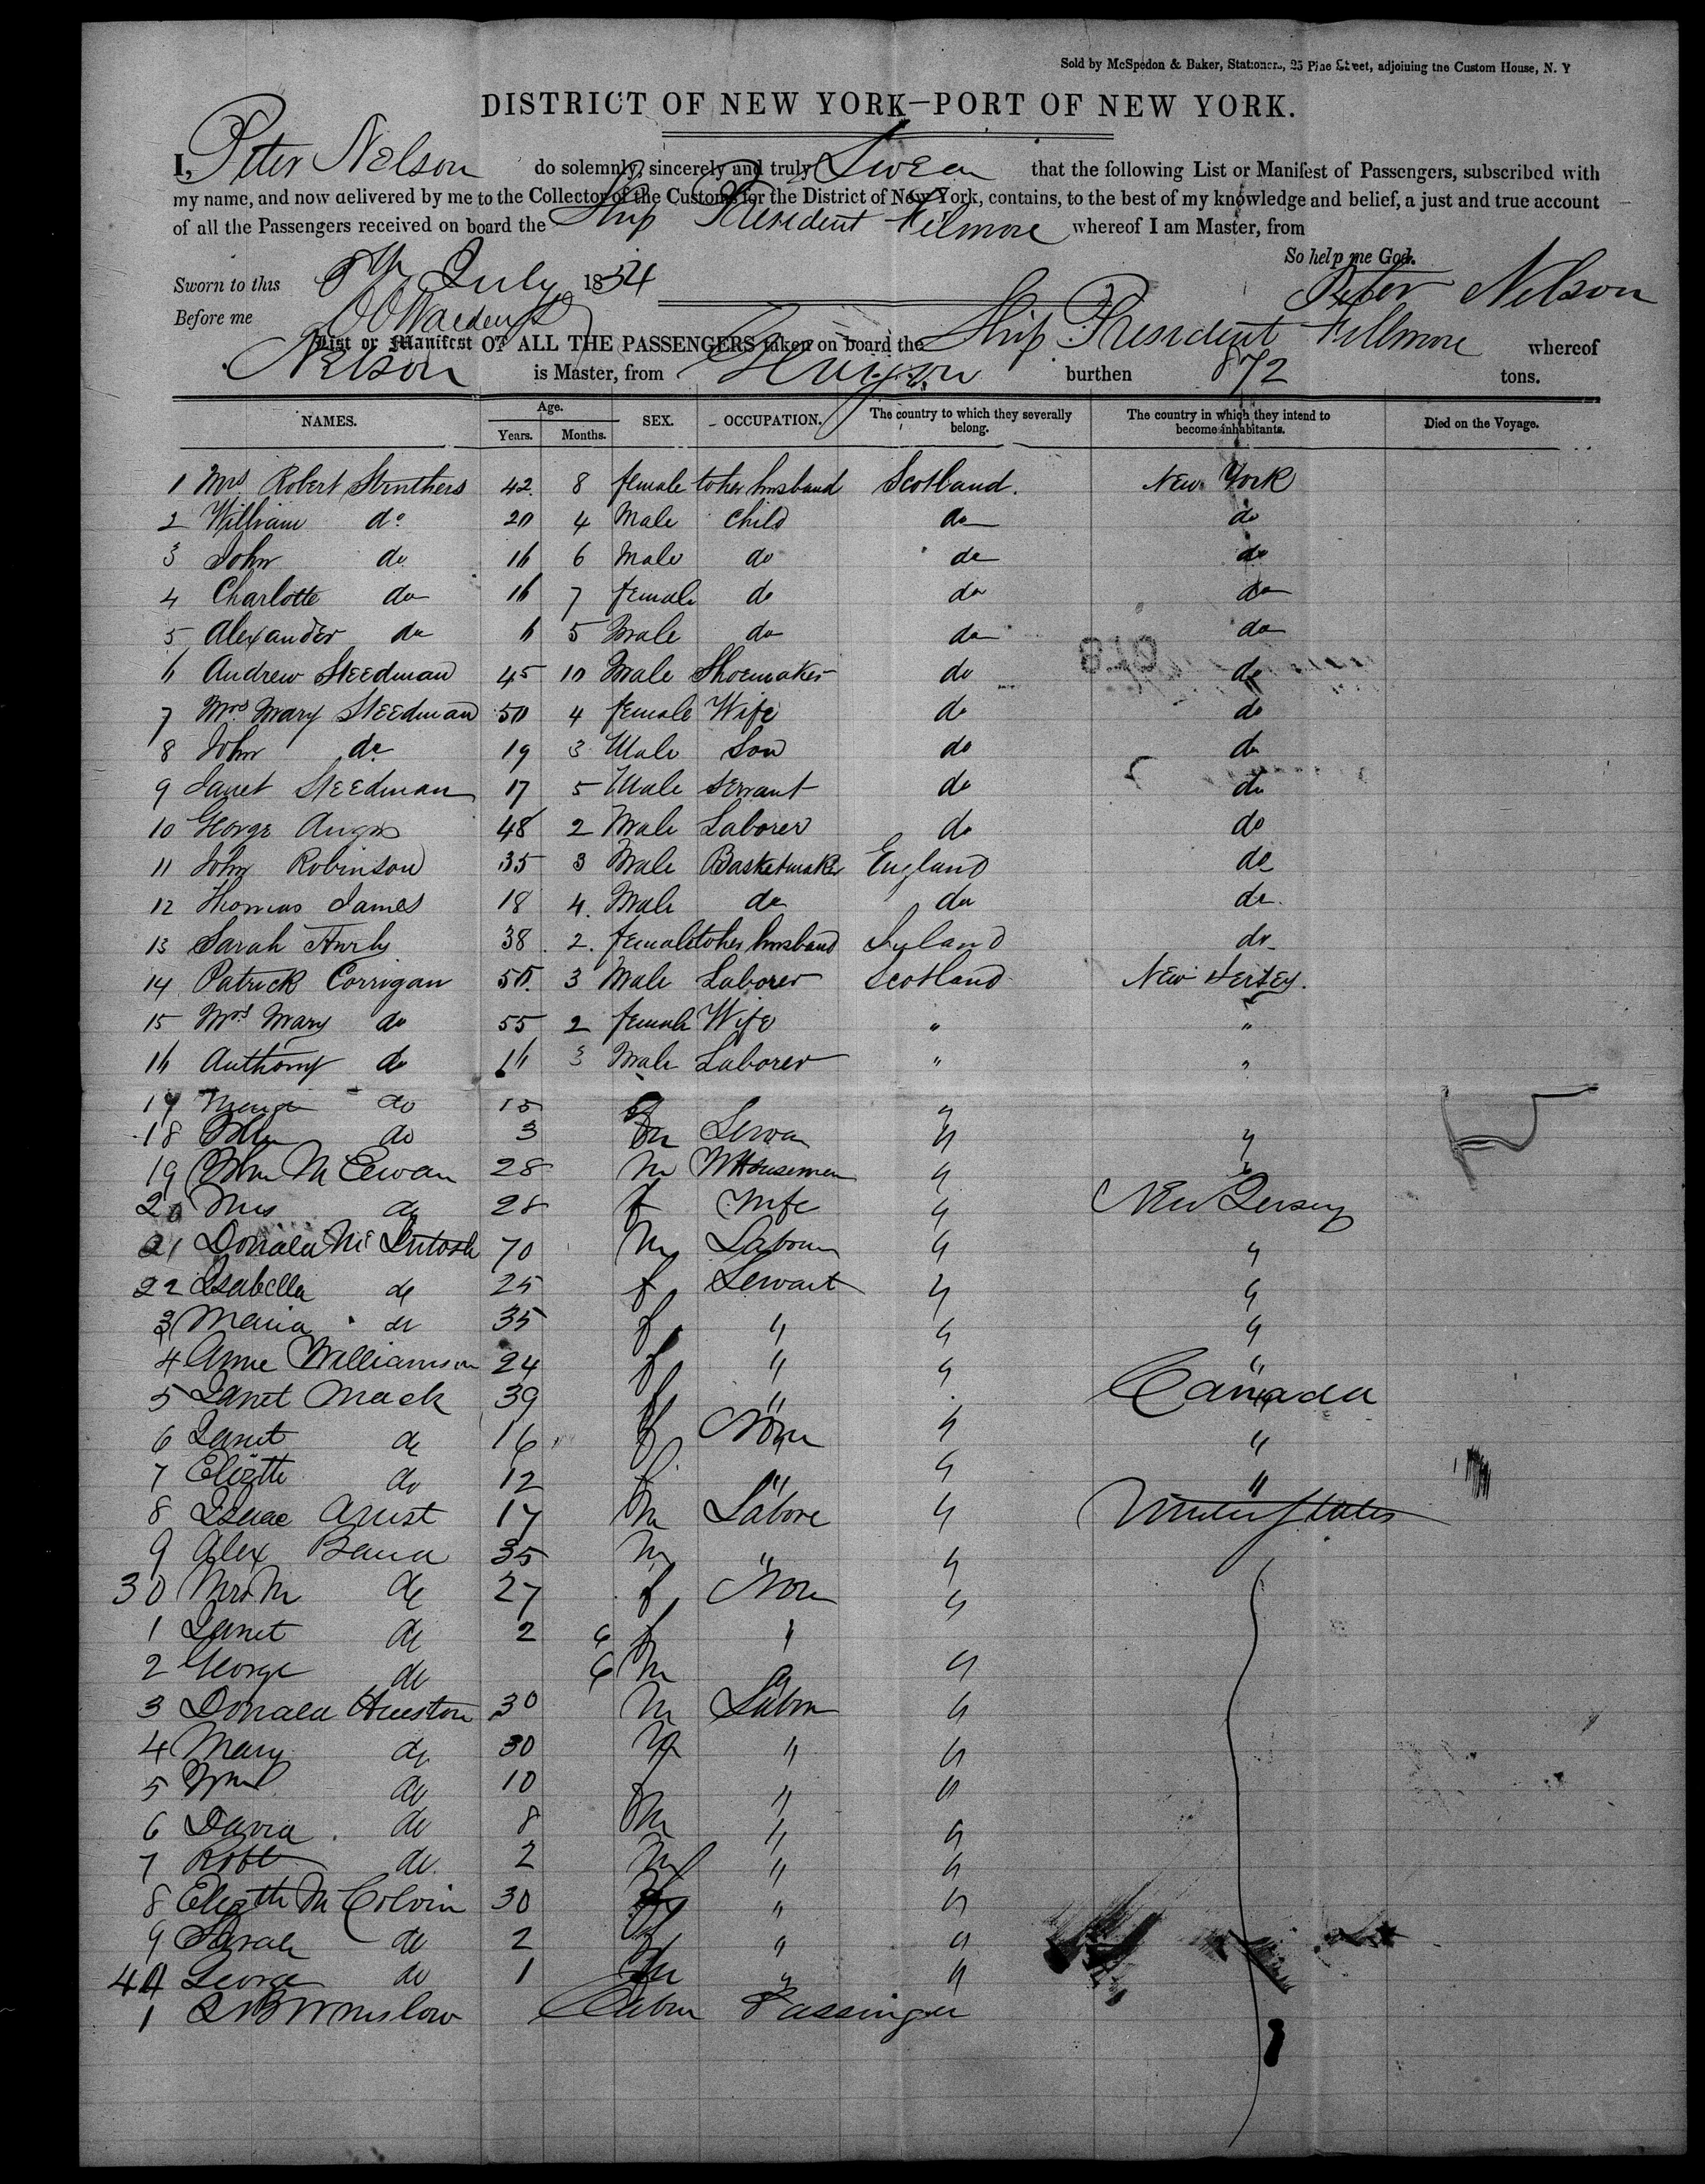 Sold by McSpedon & Baker, Stationers, 25 Pine Street, adjoining the Custom House, N. Y
DISTRICT OF NEW YORK—PORT OF NEW YORK.
I, Peter Nelson do solemnly, sincerely and truly Swear that the following List or Manifest of Passengers, subscribed with
my name, and now delivered by me to the Collector of the Customs for the District of New York, contains, to the best of my knowledge and belief, a just and true account
of all the Passengers received on board the Ship President Filmore whereof I am Master, from
So help me God.
Sworn to this 5th July 1854 Peter Nelson
Before me
List or Manifest OF ALL THE PASSENGERS taken on board the Ship President Fillmore whereof
Nelson is Master, from burthen 872 tons.
NAMES. Age. Years. Months. SEX. OCCUPATION. The country to which they severally belong. The country in which they intend to become inhabitants. Died on the Voyage.
1 Mrs Robert Struthers 42 8 female to her husband Scotland. New York
2 William do 20 4 Male Child do do
3 John do 16 6 Male do do do
4 Charlotte do 16 7 female do do do
5 Alexander do 6 5 Male do do do
6 Andrew Steedman 45 10 Male Shoemaker do do
7 Mrs Mary Steedman 50 4 female Wife do do
8 John do 19 3 Male Son do do
9 Janet Steedman 17 5 Male Servant do do
10 George Angus 48 2 Male Laborer do do
11 John Robinson 35 3 Male Basketmaker England do
12 Thomas James 18 4 Male do do do
13 Sarah 38 2 female to her husband do
14 Patrick Corrigan 50 3 Male Laborer Scotland New Jersey.
15 Mrs Mary do 55 2 female Wife " "
16 Anthony do 16 3 Male Laborer " "
17 do 15 f "
18 John do 3 m " "
19 John McEwan 28 m " "
20 Mrs do 28 f Wife " New Jersey
21 Donald McIntosh 70 m Labour " "
22 Isabella do 25 f Servant " "
3 Maria do 35 f " " "
4 Anne Williamson 24 f " " "
5 Janet Mack 39 f " " Canada
6 Janet do 16 f None " "
7 Elizth do 12 f " " "
8 Isaac 17 m Labore " United States
9 Alex 35 m " "
30 Mrs M do 27 f None "
1 Janet do 2 6 f "
2 George do 6 m " "
3 Donald Hueston 30 m Labor "
4 Mary do 30 " "
5 Wm do 10 m " "
6 David do 8 m " "
7 Robt do 2 m " "
8 Elizth McColvin 30 f " "
9 Sarah do 2 f " "
40 George do 1 m " "
1 Winslow Cabin Passinger